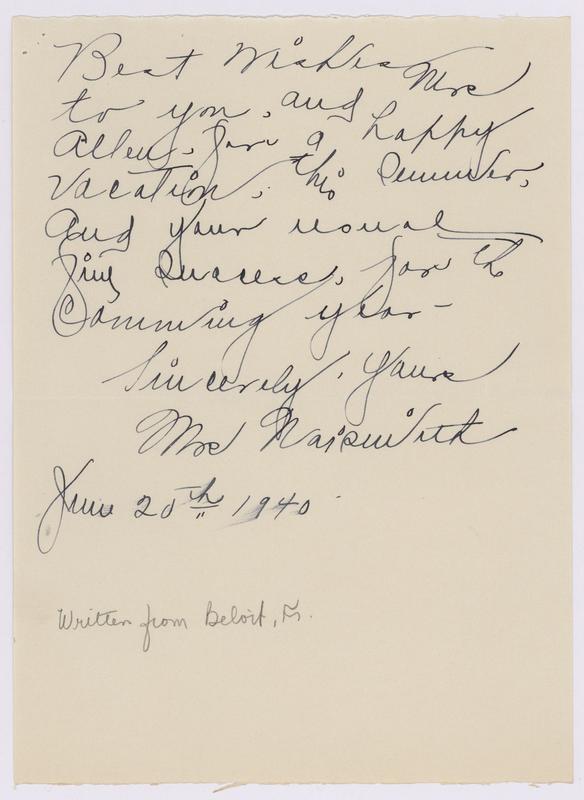 Best Wishes Mrs
to you, and
Allen, for a happy
vacation, this Summer,
and your usual
fine Success, for the
Comming year-
Sincerely, Yours
Mrs Naismith
June 20th 1940
Written from Beloit, Ks.